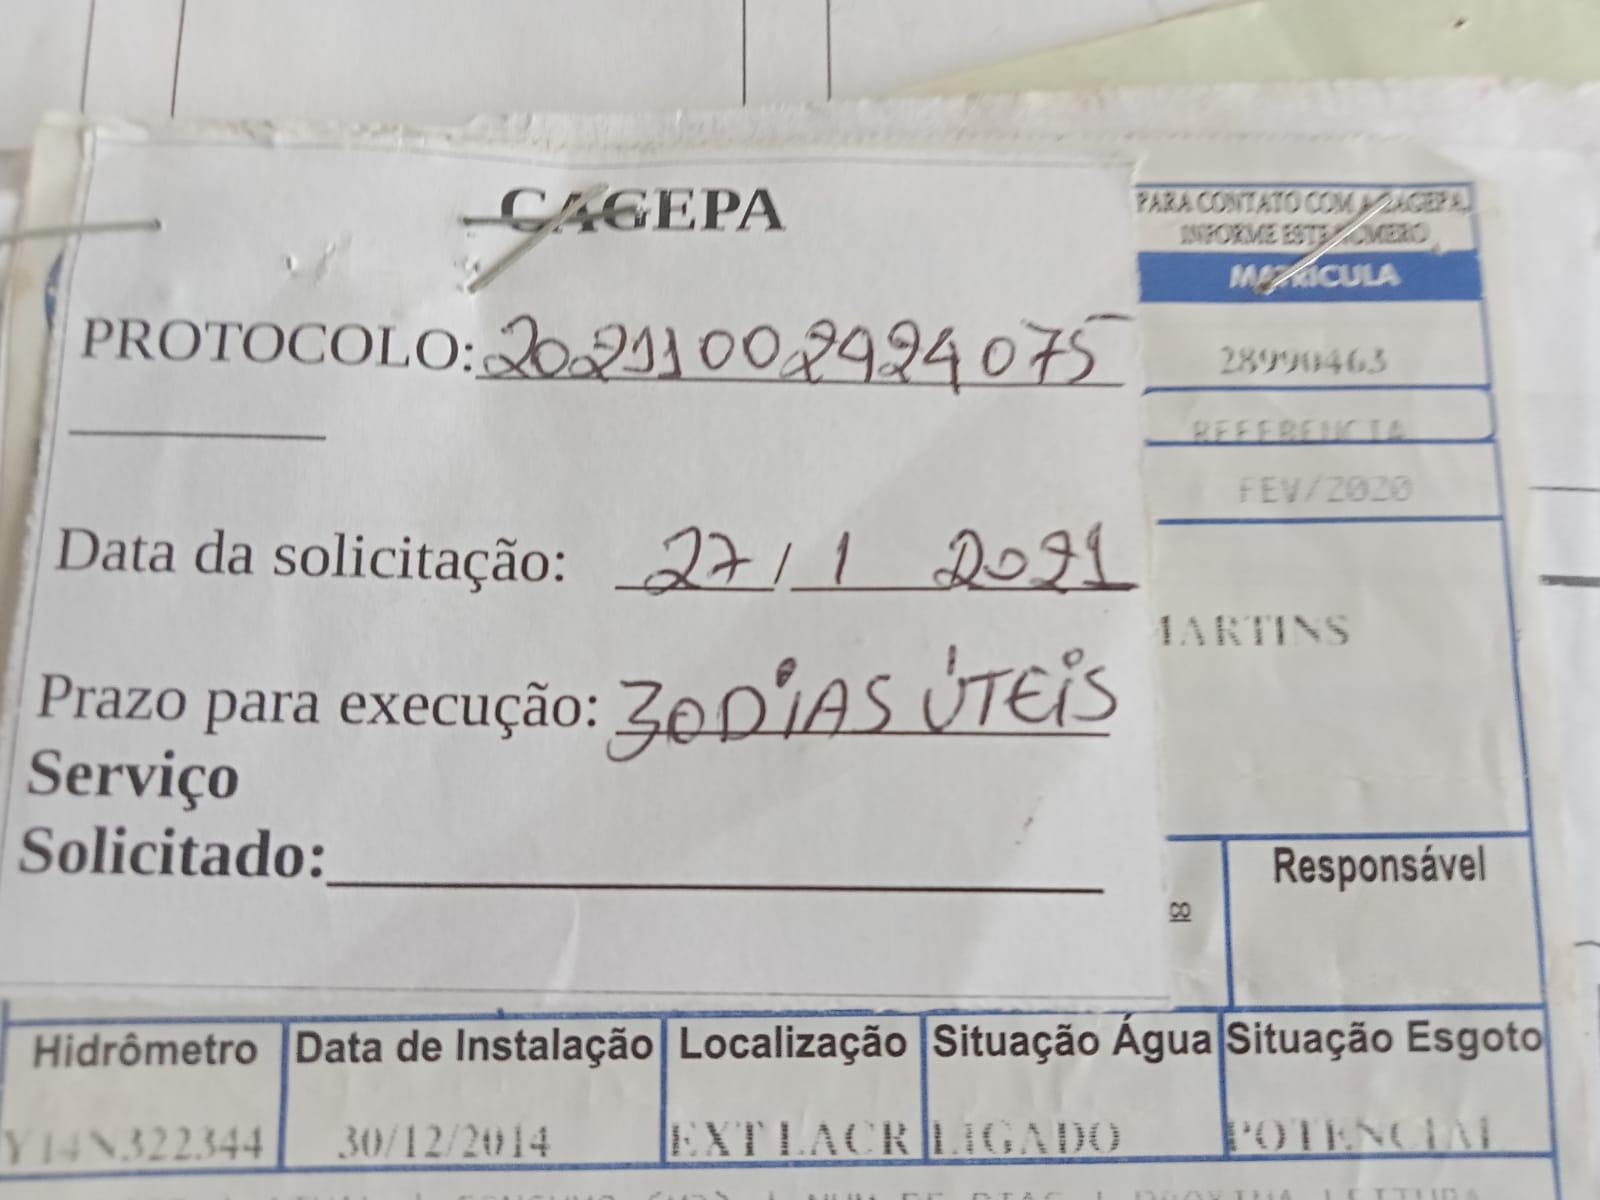 CAGEPA
PROTOCOLO: 20211002924075
Data da solicitação: 27/1 2021
Prazo para execução: 30 DIAS ÚTEIS
Serviço
Solicitado:
PARA CONTATO COM A CAGEPA,
INFORME ESTE NÚMERO
MATRICULA
28990463
REFERENCIA
FEV/2020
MARTINS
Responsável
Hidrômetro Data de Instalação Localização Situação Água Situação Esgoto
Y14N322344 30/12/2014 EXT LACR LIGADO POTENCIAL